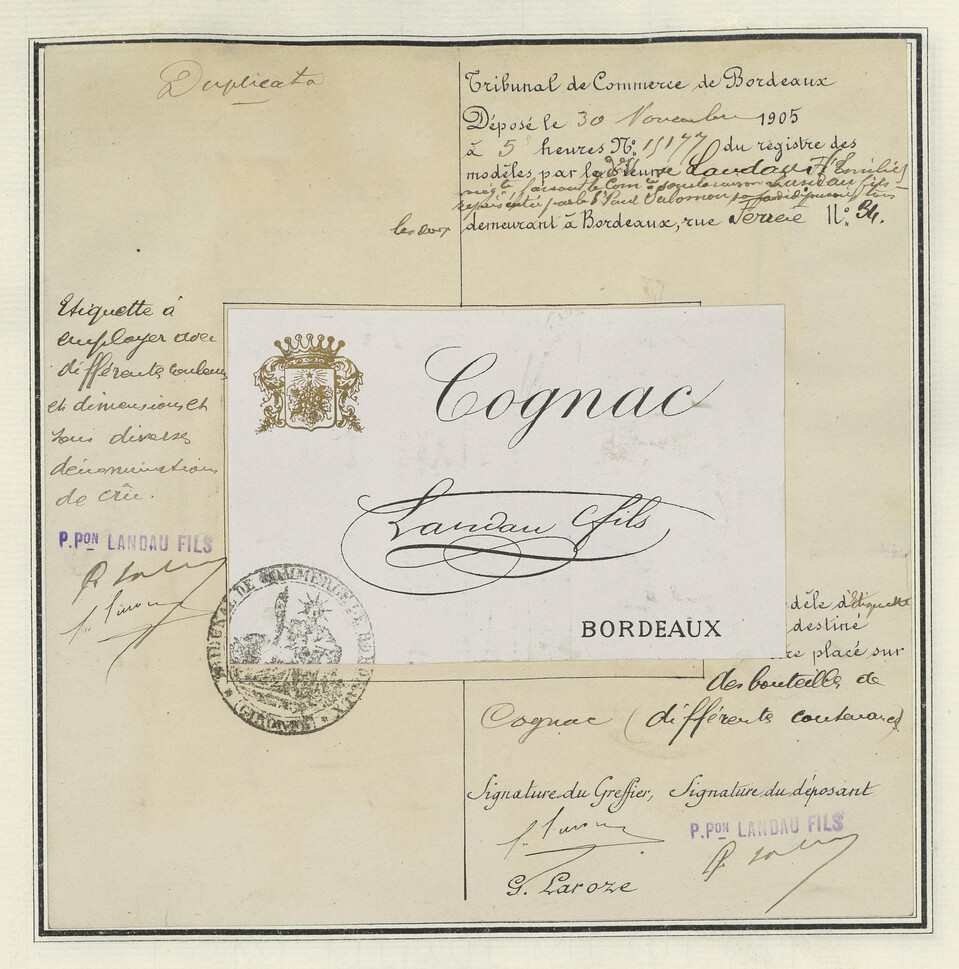 Duplicata
Tribunal de Commerce de Bordeaux
Déposé le 30 Novembre 1905
à 5 heures No. 15177 du registre des
modèles, par la Landau
Landau fils
représentée par le Sr. Paul Salomon
demeurant à Bordeaux, rue No. 34.
Etiquette à
employer avec
différents couleurs
et dimensions et
sous diverses
dénominations
de crû.
P.PON LANDAU FILS
Cognac
Landau fils
BORDEAUX
TRIBUNAL DE COMMERCE DE BORDEAUX
(GIRONDE)
dèle d'étiquette
destiné
re placé sur
des bouteilles de
Cognac (différentes contenances)
Signature du Greffier, Signature du déposant
P.PON LANDAU FILS
G. Laroze